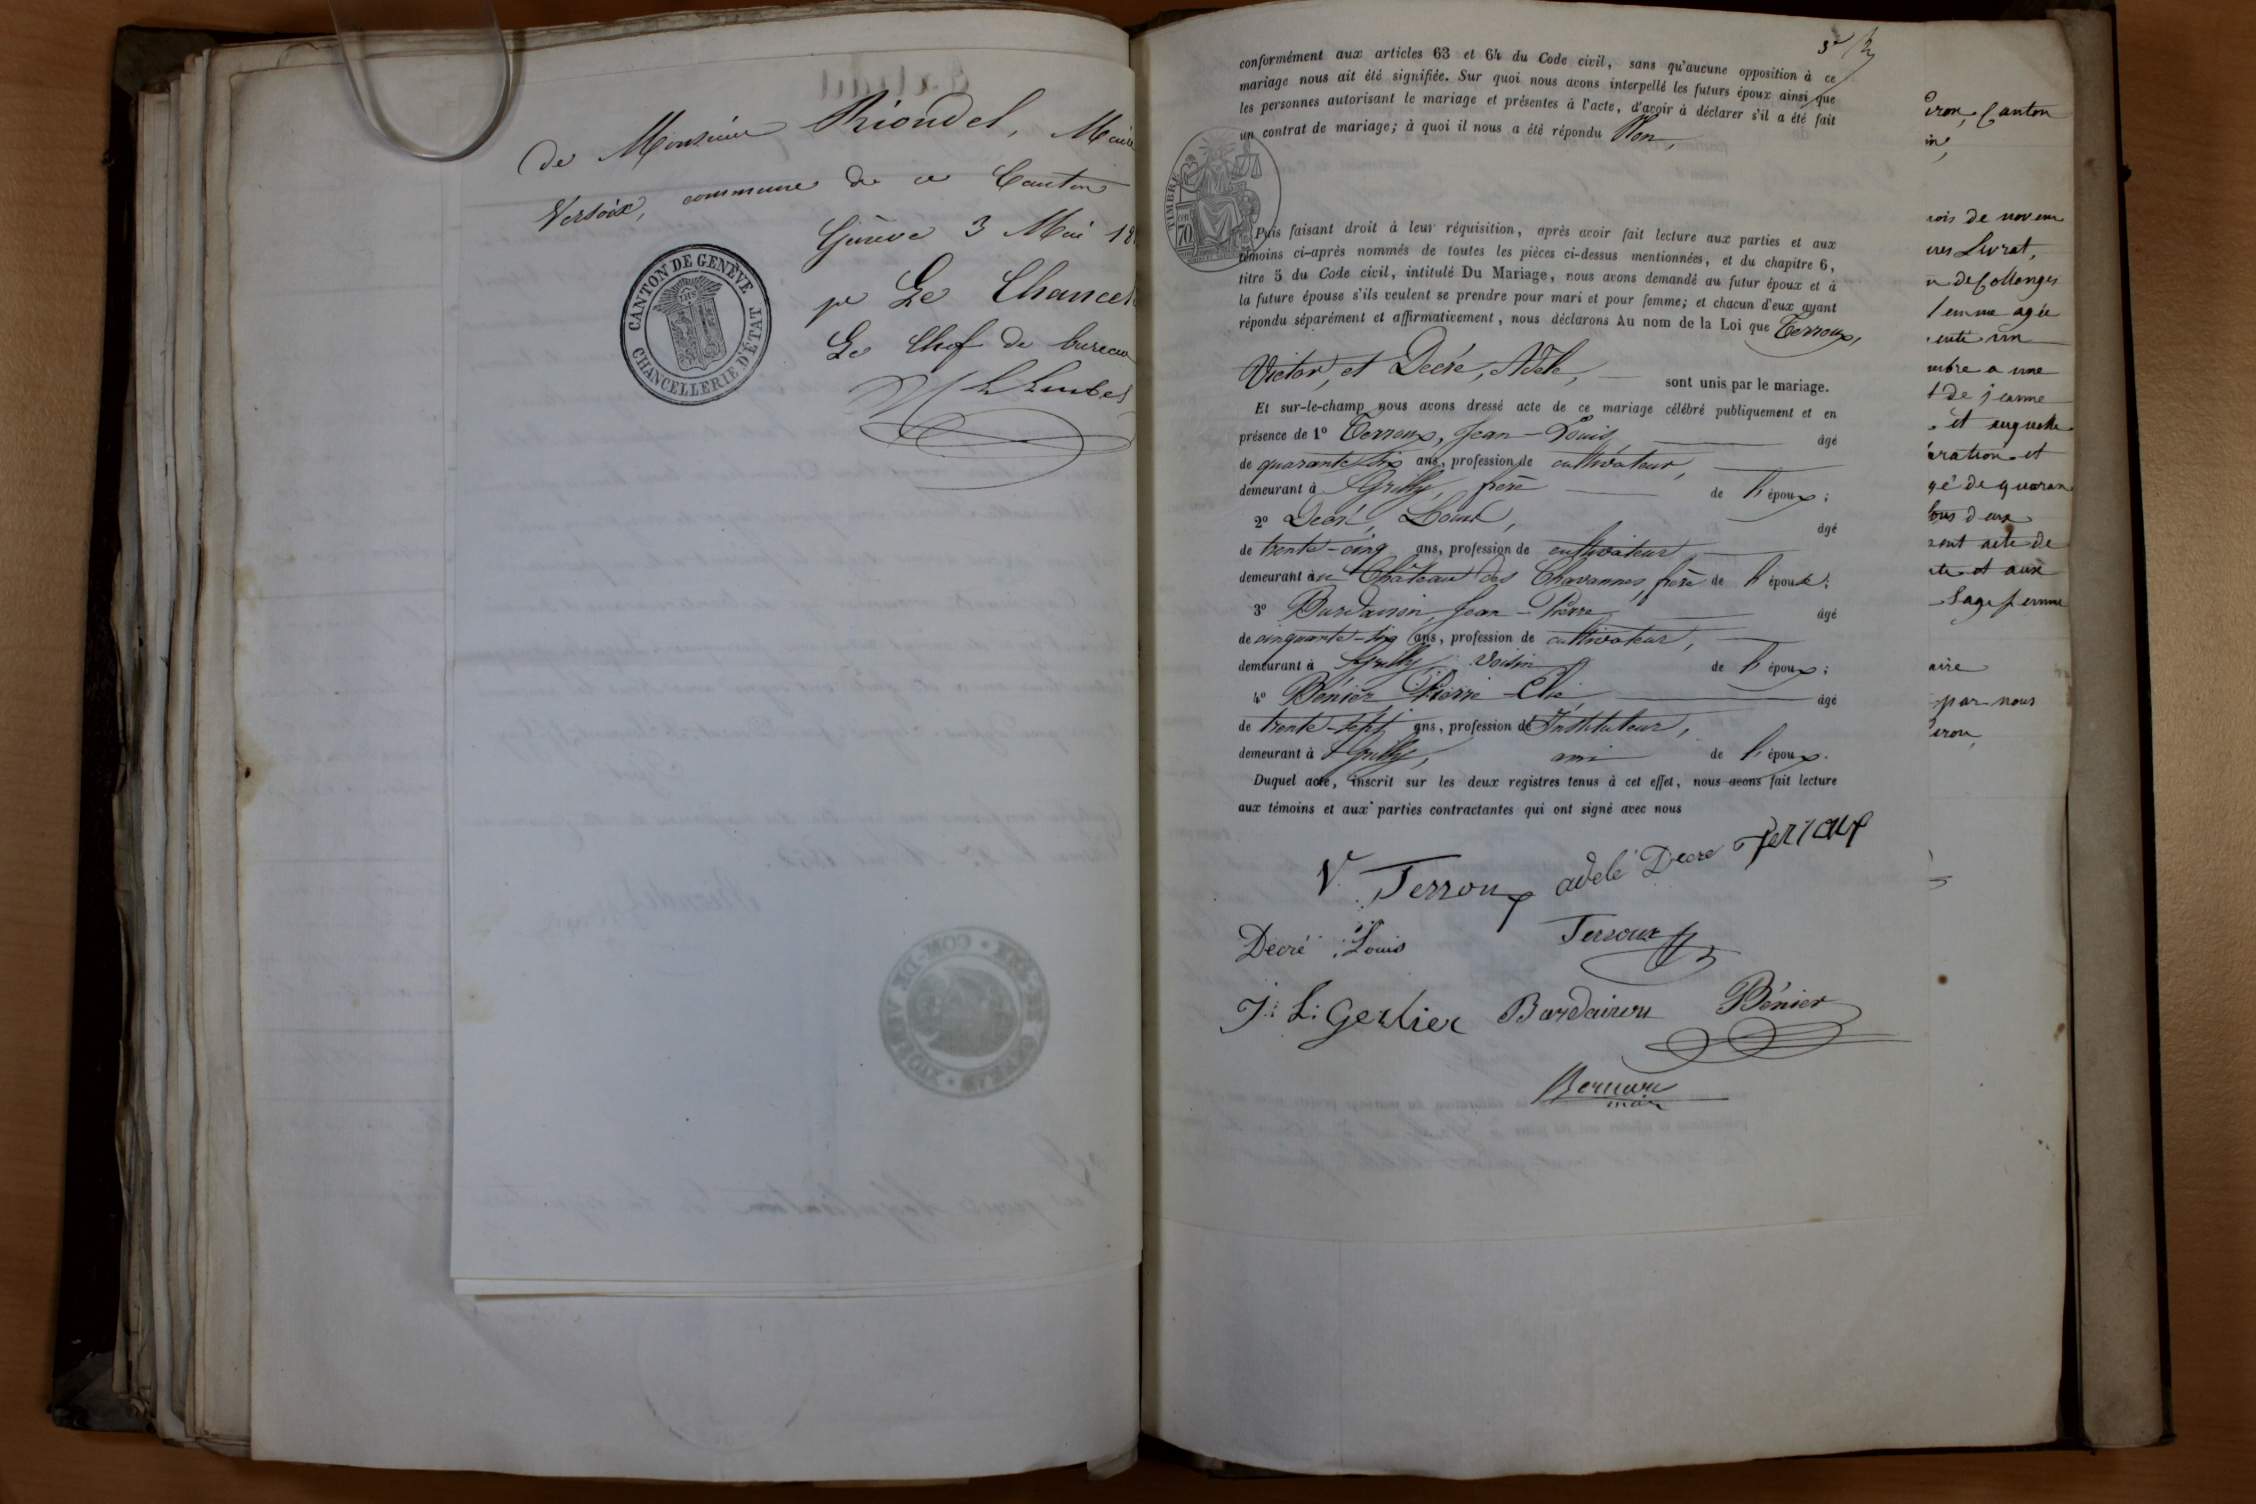 de Monsieur Riondel, Maire
Versoix, commune de ce Canton
Genève 3 Mai 18
pr Le Chancel
Le Chef de bureau
CANTON DE GENÈVE
CHANCELLERIE D'ÉTAT
conformément aux articles 63 et 64 du Code civil, sans qu'aucune opposition à ce
mariage nous ait été signifiée. Sur quoi nous avons interpellé les futurs époux ainsi que
les personnes autorisant le mariage et présentes à l'acte, d'avoir à déclarer s'il a été fait
un contrat de mariage; à quoi il nous a été répondu Non,
TIMBRE
70
Puis faisant droit à leur réquisition, après avoir fait lecture aux parties et aux
témoins ci-après nommés de toutes les pièces ci-dessus mentionnées, et du chapitre 6,
titre 5 du Code civil, intitulé Du Mariage, nous avons demandé au futur époux et à
la future épouse s'ils veulent se prendre pour mari et pour femme; et chacun d'eux ayant
répondu séparément et affirmativement, nous déclarons Au nom de la Loi que Terroux,
Victor, et Decré, Adèle, sont unis par le mariage.
Et sur-le-champ nous avons dressé acte de ce mariage célébré publiquement et en
présence de 1o Terroux, Jean-Louis âgé
de quarante-six ans, profession de cultivateur,
demeurant à Grilly, frère de l'époux;
2o Decré, Louis, âgé
de trente-cinq ans, profession de cultivateur
demeurant au Château des Chavannes, frère de l'épouse;
3o Burdairon, Jean-Pierre âgé
de cinquante-six ans, profession de cultivateur,
demeurant à Grilly voisin de l'époux;
4o Bénier Pierre âgé
de trente-sept ans, profession d'Instituteur,
demeurant à Grilly, ami de l'époux.
Duquel acte, inscrit sur les deux registres tenus à cet effet, nous avons fait lecture
aux témoins et aux parties contractantes qui ont signé avec nous
V. Terroux adele Decre Terroux
Decré Louis Terroux
J. L. Gerlier Burdairon Bénier
iron, Canton
in,
mois de novem
ures Livrat,
n de Collonges
femme agée
mbre a une
t de jeanne
et auguste
eration et
gé de quaran
tous deux
ront acte de
ete et aux
Sage femme
aire
par nous
iron,